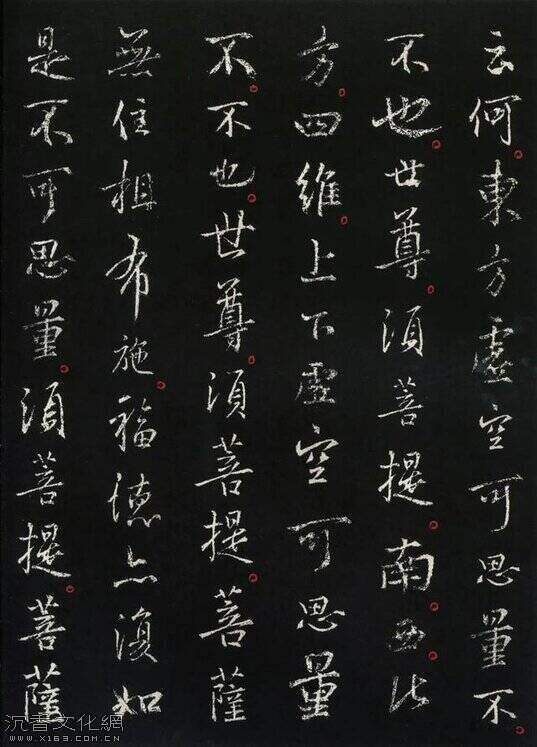 云何東方虛空可思量不
不也世尊須菩提南西北
方四維上下虛空可思量
不不也世尊須菩提菩薩
無住相布施福德亦復如
是不可思量須菩提菩薩
沉香文化網
www.x163.com.cn